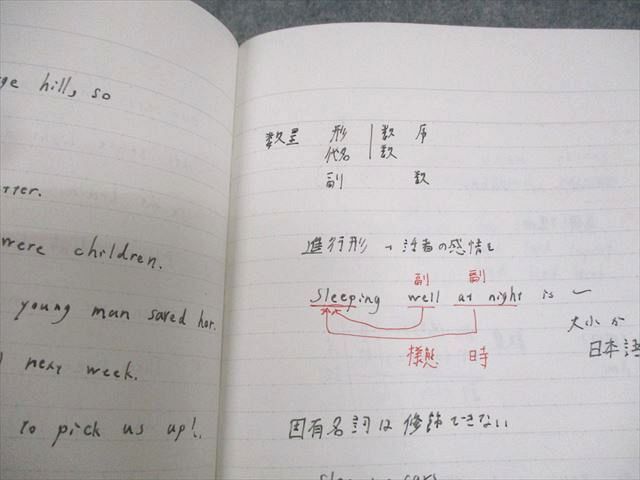 hills, so
were children.
young man saved her.
next week.
to pick us up!.
数量 形 | 数 序
代名 | 数
副 数
進行形 → 話者の感情も
副 副
Sleeping well at night is ~
様態 時
大小が
日本語
固有名詞は修飾できない